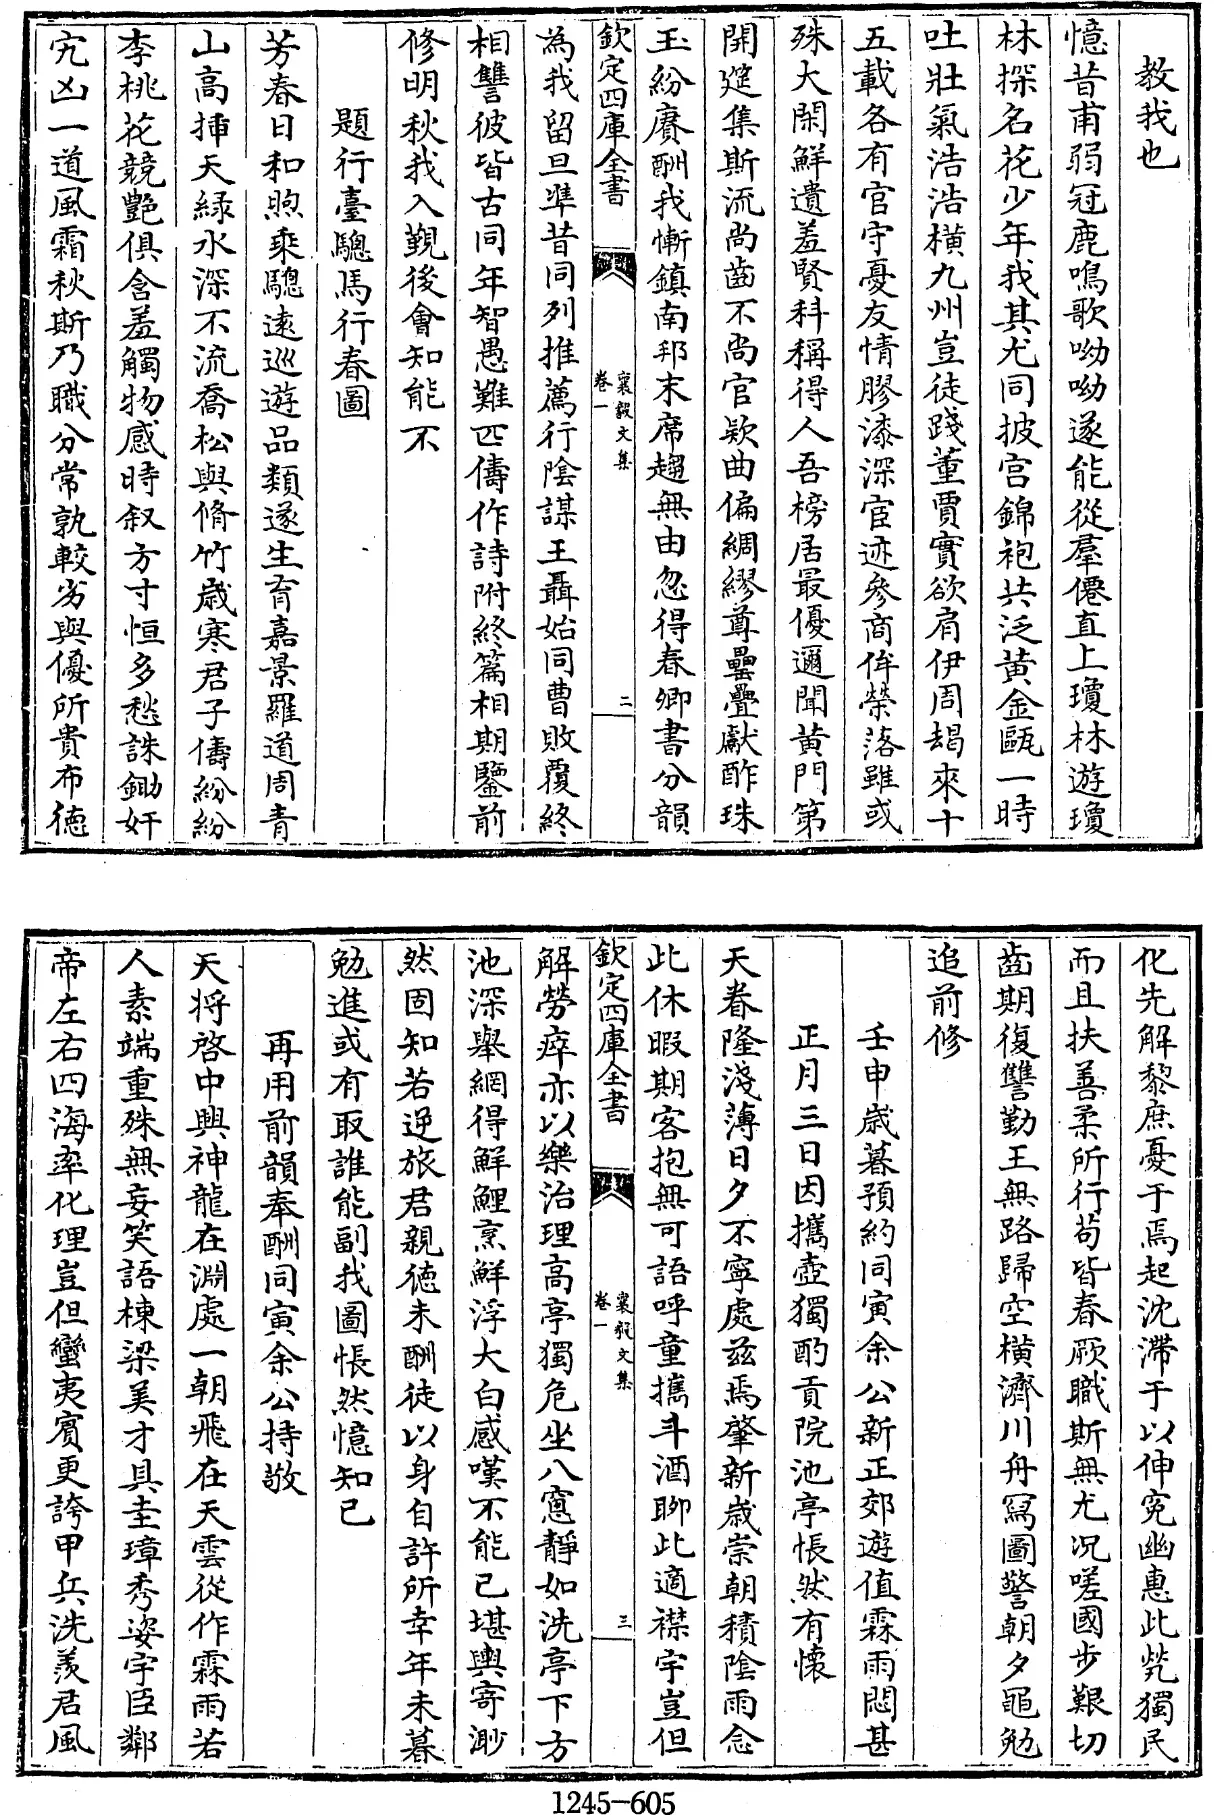 教我也
憶昔甫弱冠鹿鳴歌呦呦遂能從羣僊直上瓊林遊瓊
林探名花少年我其尤同披宫錦袍共泛黄金甌一時
吐壯氣浩浩橫九州豈徒踐董賈實欲肩伊周朅來十
五載各有官守憂友情膠漆深宦迹參商侔榮落雖或
殊大閑鮮遺羞賢科稱得人吾榜居最優邇聞黄門第
開筵集斯流尚齒不尚官欵曲偏綢繆尊罍疊獻酢珠
玉紛賡酬我慚鎮南邦末席趨無由忽得春卿書分韻
欽定四庫全書
襄毅文集
卷一
二
為我留且準昔同列推薦行陰謀王聶始同曹敗覆終
相讐彼皆古同年智愚難匹儔作詩附終篇相期鑒前
修明秋我入覲後會知能不
題行臺驄馬行春圖
芳春日和煦乘驄逺巡遊品類遂生育嘉景羅道周青
山高揷天緑水深不流喬松與脩竹歲寒君子儔紛紛
李桃花競艷俱含羞觸物感時叙方寸恒多愁誅鋤奸
宄凶一道風霜秋斯乃職分常孰較劣與優所貴布德
化先解黎庶憂于焉起沈滯于以伸寃幽惠此煢獨民
而且扶善柔所行苟皆春厥職斯無尤况嗟國步艱切
齒期復讐勤王無路歸空橫濟川舟寫圖警朝夕黽勉
追前修
壬申歲暮預約同寅余公新正郊遊值霖雨悶甚
正月三日因攜壺獨酌貢院池亭悵然有懷
天眷隆淺薄日夕不寧處兹焉肇新歲崇朝積陰雨念
此休暇期客抱無可語呼童攜斗酒聊此適襟宇豈但
欽定四庫全書
襄毅文集
卷一
三
解勞瘁亦以樂治理高亭獨危坐八窻靜如洗亭下方
池深舉網得鮮鯉烹鮮浮大白感嘆不能已堪輿寄渺
然固知若逆旅君親德未酬徒以身自許所幸年未暮
勉進或有取誰能副我圖悵然憶知己
再用前韻奉酬同寅余公持敬
天将啓中興神龍在淵處一朝飛在天雲從作霖雨若
人素端重殊無妄笑語棟梁美才具圭璋秀姿宇臣鄰
帝左右四海率化理豈但蠻夷賓更誇甲兵洗羨君風
1245-605